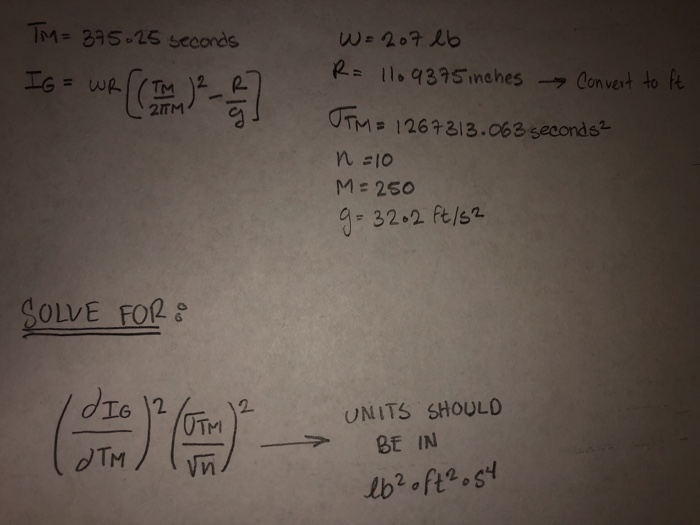 TM = 375.25 seconds
W = 2.7 lb
IG = WR[(TM/2πM)² - R/g]
R = 11.9375 inches → Convert to ft
σTM = 1267313.063 seconds²
n = 10
M = 250
g = 32.2 ft/s²
SOLVE FOR:
(dIG/dTM)² (σTM/√n)² → UNITS SHOULD
BE IN
lb²·ft²·s⁴